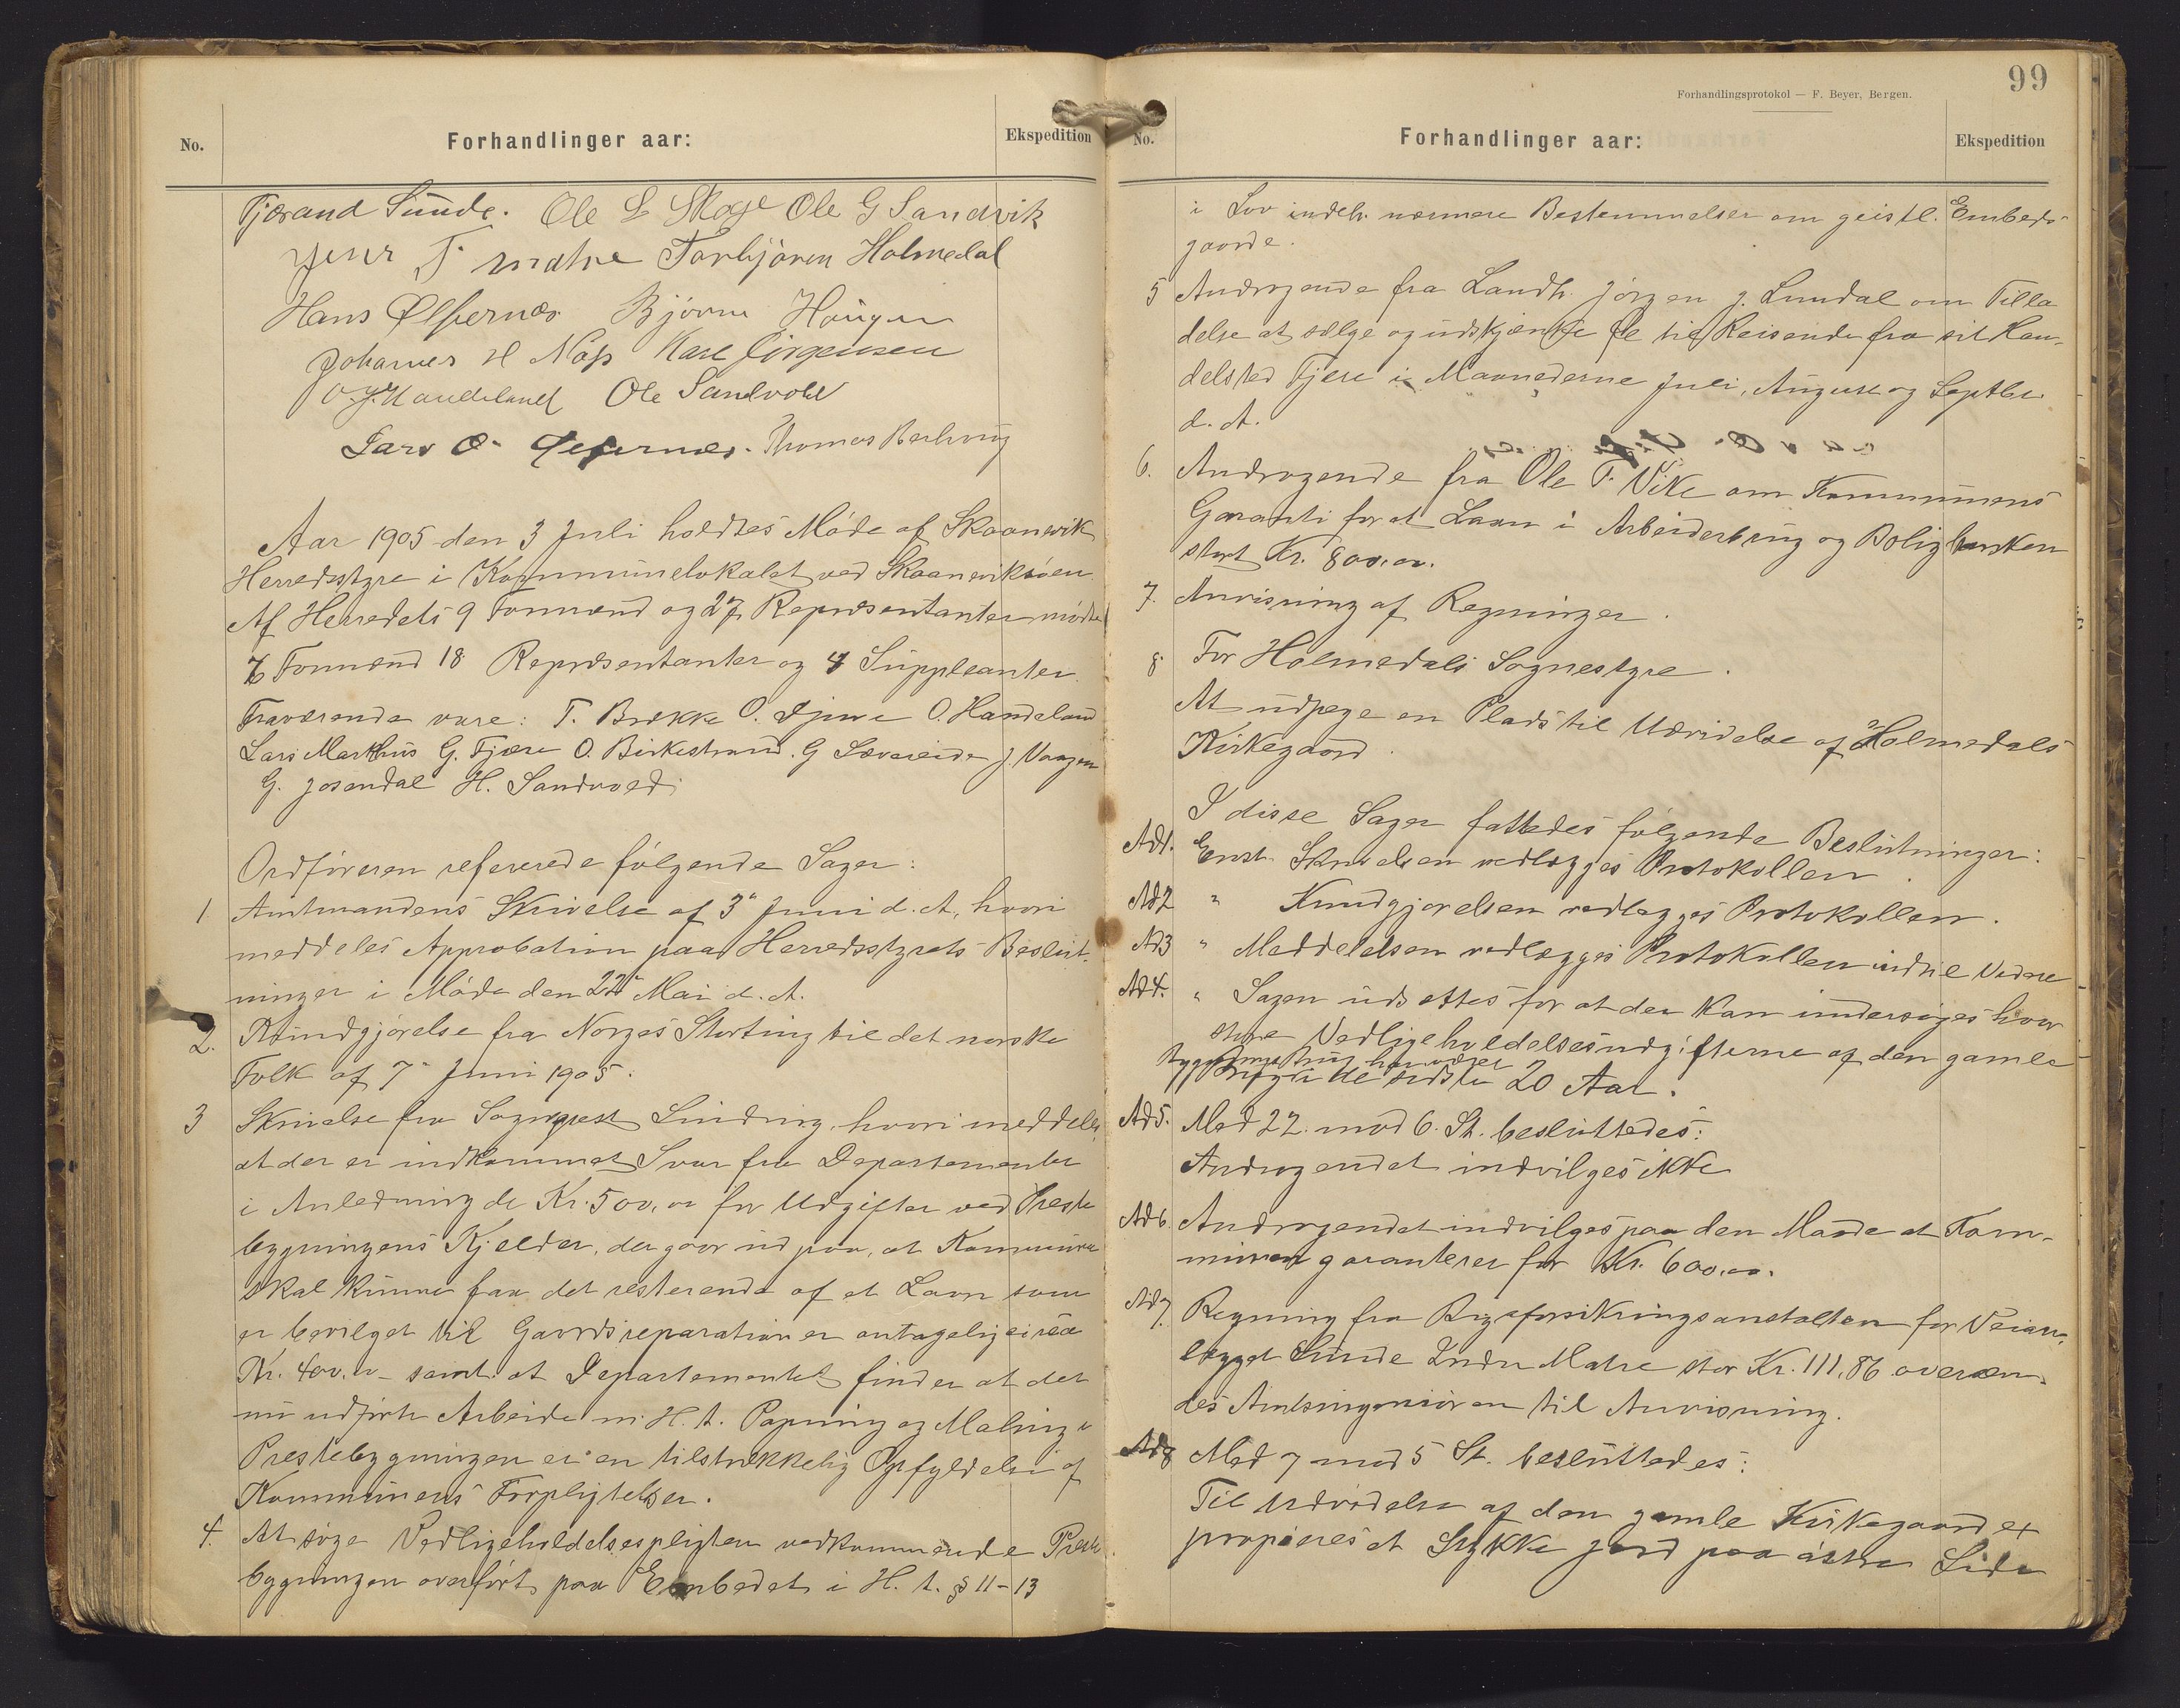 No.
Forhandlinger aar:
Ekspedition
Tjærand Sunde. Ole L Skoge Ole G Sandvik
Jens T. Matre Torbjörn Holmedal
Hans Ølfernæs Björne Haugen
Johannes H Næss Karl Jörgensen
O J. Handeland Ole Sandvold
Lars O. Ølfernæs. Thomas Berhoug
Aar 1905 den 3 Juli holdtes Møde af Skaanevik
Herredsstyre i Kommunelokalet ved Skaaneviksøen
Af Herredets 9 Formænd og 27 Repræsentanter mødte
7 Formænd 18 Repræsentanter og 4 Suppleanter.
Fraværende vare: T. Brække O. Djuve O. Handeland
Lars Markhus G. Fjære O. Birkestrand. G Sævareide J. Vaagen
G. Josendal H. Sandvold
Ordføreren refererede følgende Sager:
1 Amtmandens Skrivelse af 3" Juni d. A., hvori
meddeles Approbation paa Herredsstyrets Beslut-
ninger i Møde den 22" Mai d. A.
2. Kundgjørelse fra Norges Storting til det norske
Folk af 7" Juni 1905.
3 Skrivelse fra Sogneprest Lindring, hvori meddeles
at der er indkommet Svar fra Departementet
i Anledning de Kr. 500,00 for Udgifter ved Preste
bygningens Kjelder, der gaar ud paa, at Kommunen
skal kunne faa det resterende af et Laan som
er bevilget til Gaardsreparationer antagelig circa
Kr. 400,00 – samt at Departementet finder at det
nu udførte Arbeide m. H. t. Papning og Maling i
Prestebygningen er en tilstrækkelig Opfyldelse af
Kommunens Forpligtelser.
4. At søge Vedligeholdelsespligten vedkommende Preste
bygningen overført paa Embedet i H. t. § 11-13
99
Forhandlingsprotokol — F. Beyer, Bergen.
No.
Forhandlinger aar:
Ekspedition
i Lov indeh. nærmere Bestemmelser om geistl. Embeds-
gaarde.
5 Andragende fra Landh. Jörgen J. Lundal om Tilla
delse at sælge og udskjænke Øl til Reisende fra sit Han-
delsted Fjære i Maanederne Juli, August og Septbr.
d. A.
6. Andragende fra Ole T. Vike om Kommunens
Garanti for et Laan i Arbeiderbrug og Boligbanken
stort Kr. 800,00.
7. Anvisning af Regninger.
8 For Holmedals Sognestyre.
At udpege en Plads til Udvidelse af Holmedals
Kirkegaard.
I disse Sager fattedes følgende Beslutninger:
Ad 1. Enst. Skrivelsen vedlægges Protokollen.
Ad 2 " Kundgjørelsen vedlægges Protokollen.
Ad 3 " Meddelelsen vedlægges Protokollen indtil Videre
Ad 4. " Sagen udsættes for at der kan undersøges hvor
store Vedligeholdelsesudgifterne af den gamle
Bygning har været
i de sidste 20 Aar.
Ad 5. Med 22 mod 6. St. besluttedes:
Andragendet indvilges ikke
Ad 6. Andragendet indvilges paa den Maade at Kom-
munen garanterer for Kr. 600,00.
Ad 7. Regning fra Rigsforsikringsanstalten for Veian-
lægget Sunde Indre Matre stor Kr. 111,86 oversen-
des Amtsingeniøren til Anvisning.
Ad 8 Med 7 mod 5 St. besluttedes:
Til Udvidelse af den gamle Kirkegaard ex
proprieres et Stykke Jord paa østre Side